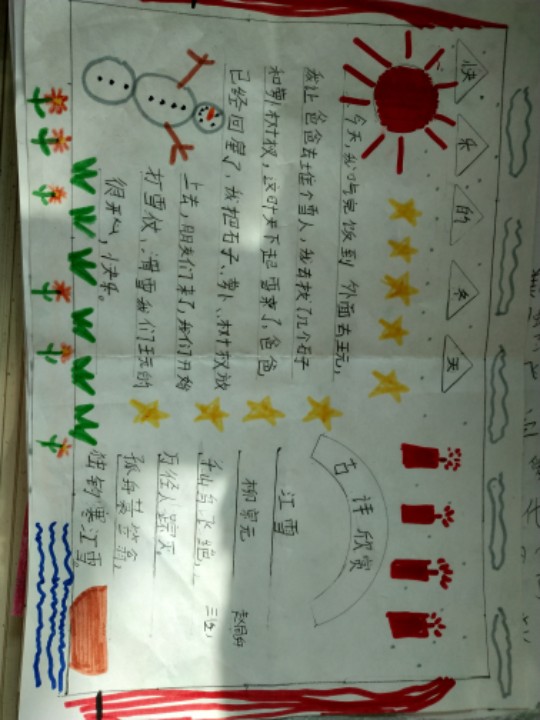 快乐的冬天
今天,我吃完饭到外面去玩,
我让爸爸去堆个雪人,我去找了几个石子
和萝卜树杈,这时天下起雪来了,爸爸
已经回屋了,我把石子、萝卜、树杈放
上去,朋友们来了,我们开始
打雪仗、滑雪我们玩的
很开心,快乐。
古诗欣赏
江雪
柳宗元
千山鸟飞绝,
万径人踪灭。
孤舟蓑笠翁,
独钓寒江雪。